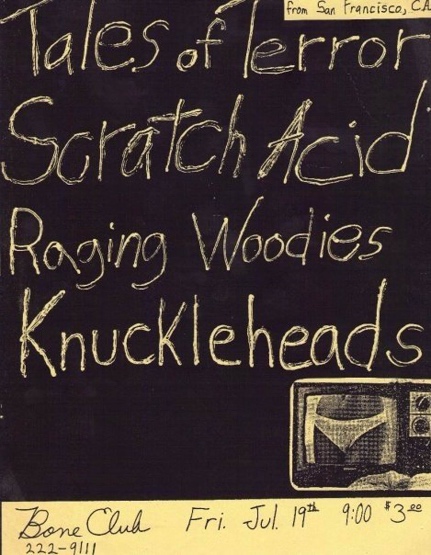 from San Francisco, CA
Tales of Terror
Scratch Acid
Raging Woodies
Knuckleheads
Bone Club Fri. Jul. 19th 9:00 $3.00
222-9111